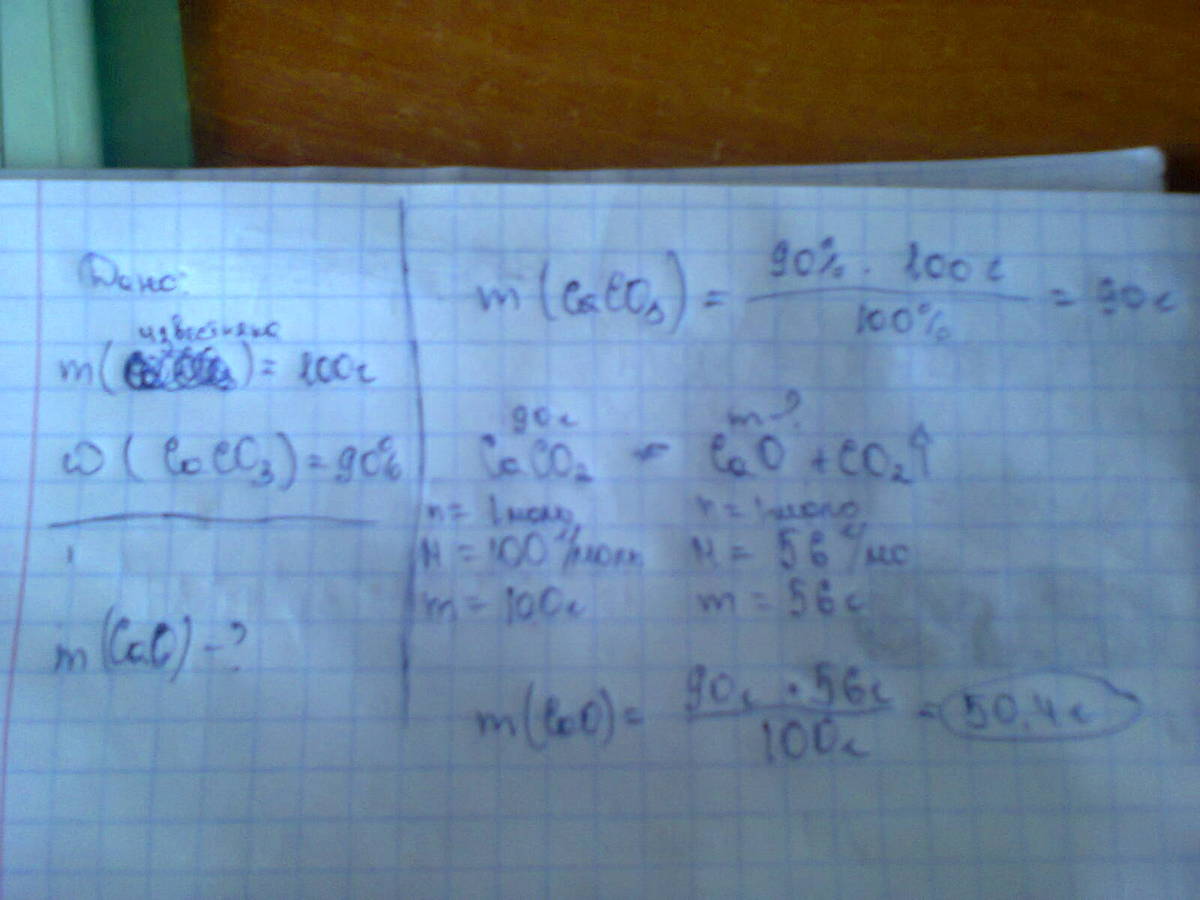 Дано:
известняка
m( ) = 100г
ω (CaCO3) = 90%
m(CaO) - ?
m (CaCO3) = 90% · 100г / 100% = 90г
90г m - ?
CaCO2 = CaO + CO2↑
n = 1моль n = 1моль
M = 100 г/моль M = 56 г/мо
m = 100г m = 56г
m(CaO) = 90г · 56г / 100г = 50,4г